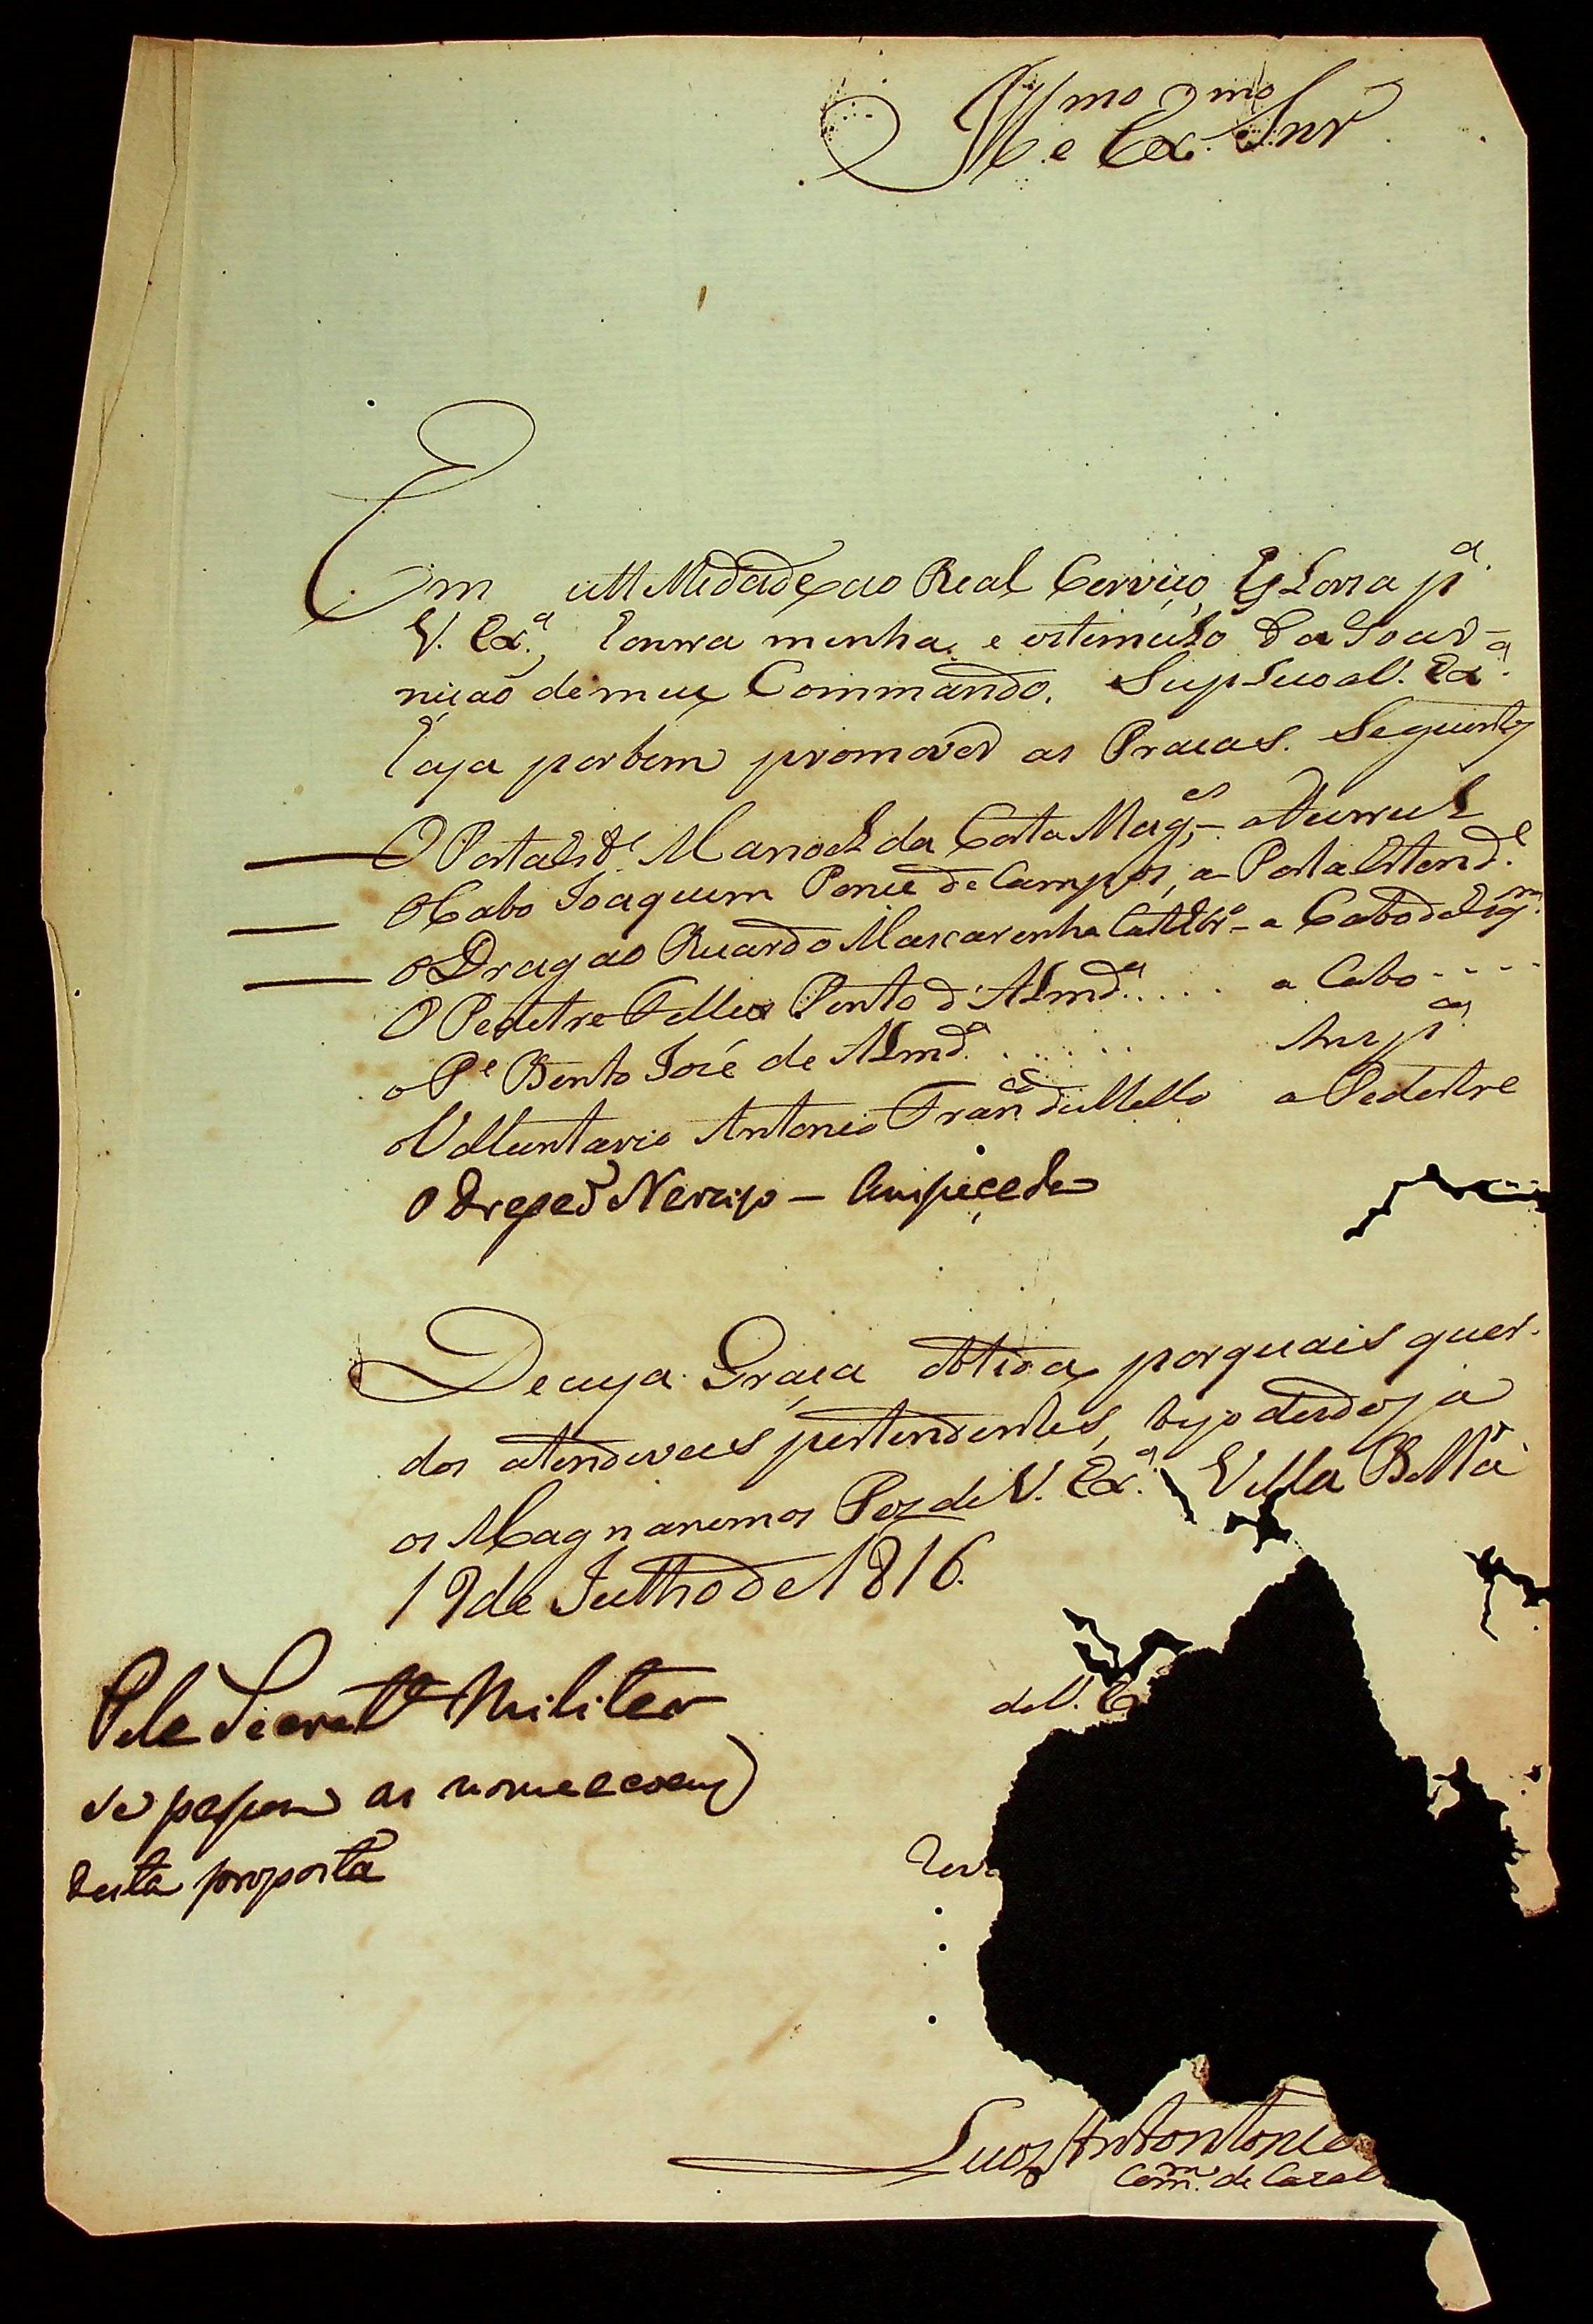 Ill.mo e Ex.mo Snr
Em utillidade ao Real Cerviço, Glora p.a
V. Ex.a, honra minha, e estimulo da Goar-
nição de meu Commando. Suplico a V. Ex.a
haja por bem promover as Praças. Seguintes
O Portaestd.e Manoel da Costa Mag.es - a Furriel
O Cabo Joaquim Ponce de Campos, a Porta Estend.e
O Dragão Ricardo Mascarenha - a Cabo de
O Pedetre Felles Pinto d'Almd.a ..... a Cabo ....
o P.e Bento José de Almd.a ...... Ansp.da
o Volluntario Antonio Fran.co de Mello a Pedestre
O Narcizo - Anspeçeda
De cuja Graça obtida por quais quer-
dos atendiveis pertendentes, bejo desde ja
os Magnanimos Pez de V. Ex.a Villa Bella
19 de Julho de 1816.
Pela Secret.a Militar
se passem as nomeacoens
desta proposta
de V. E
Luiz Antonio
Com.e de